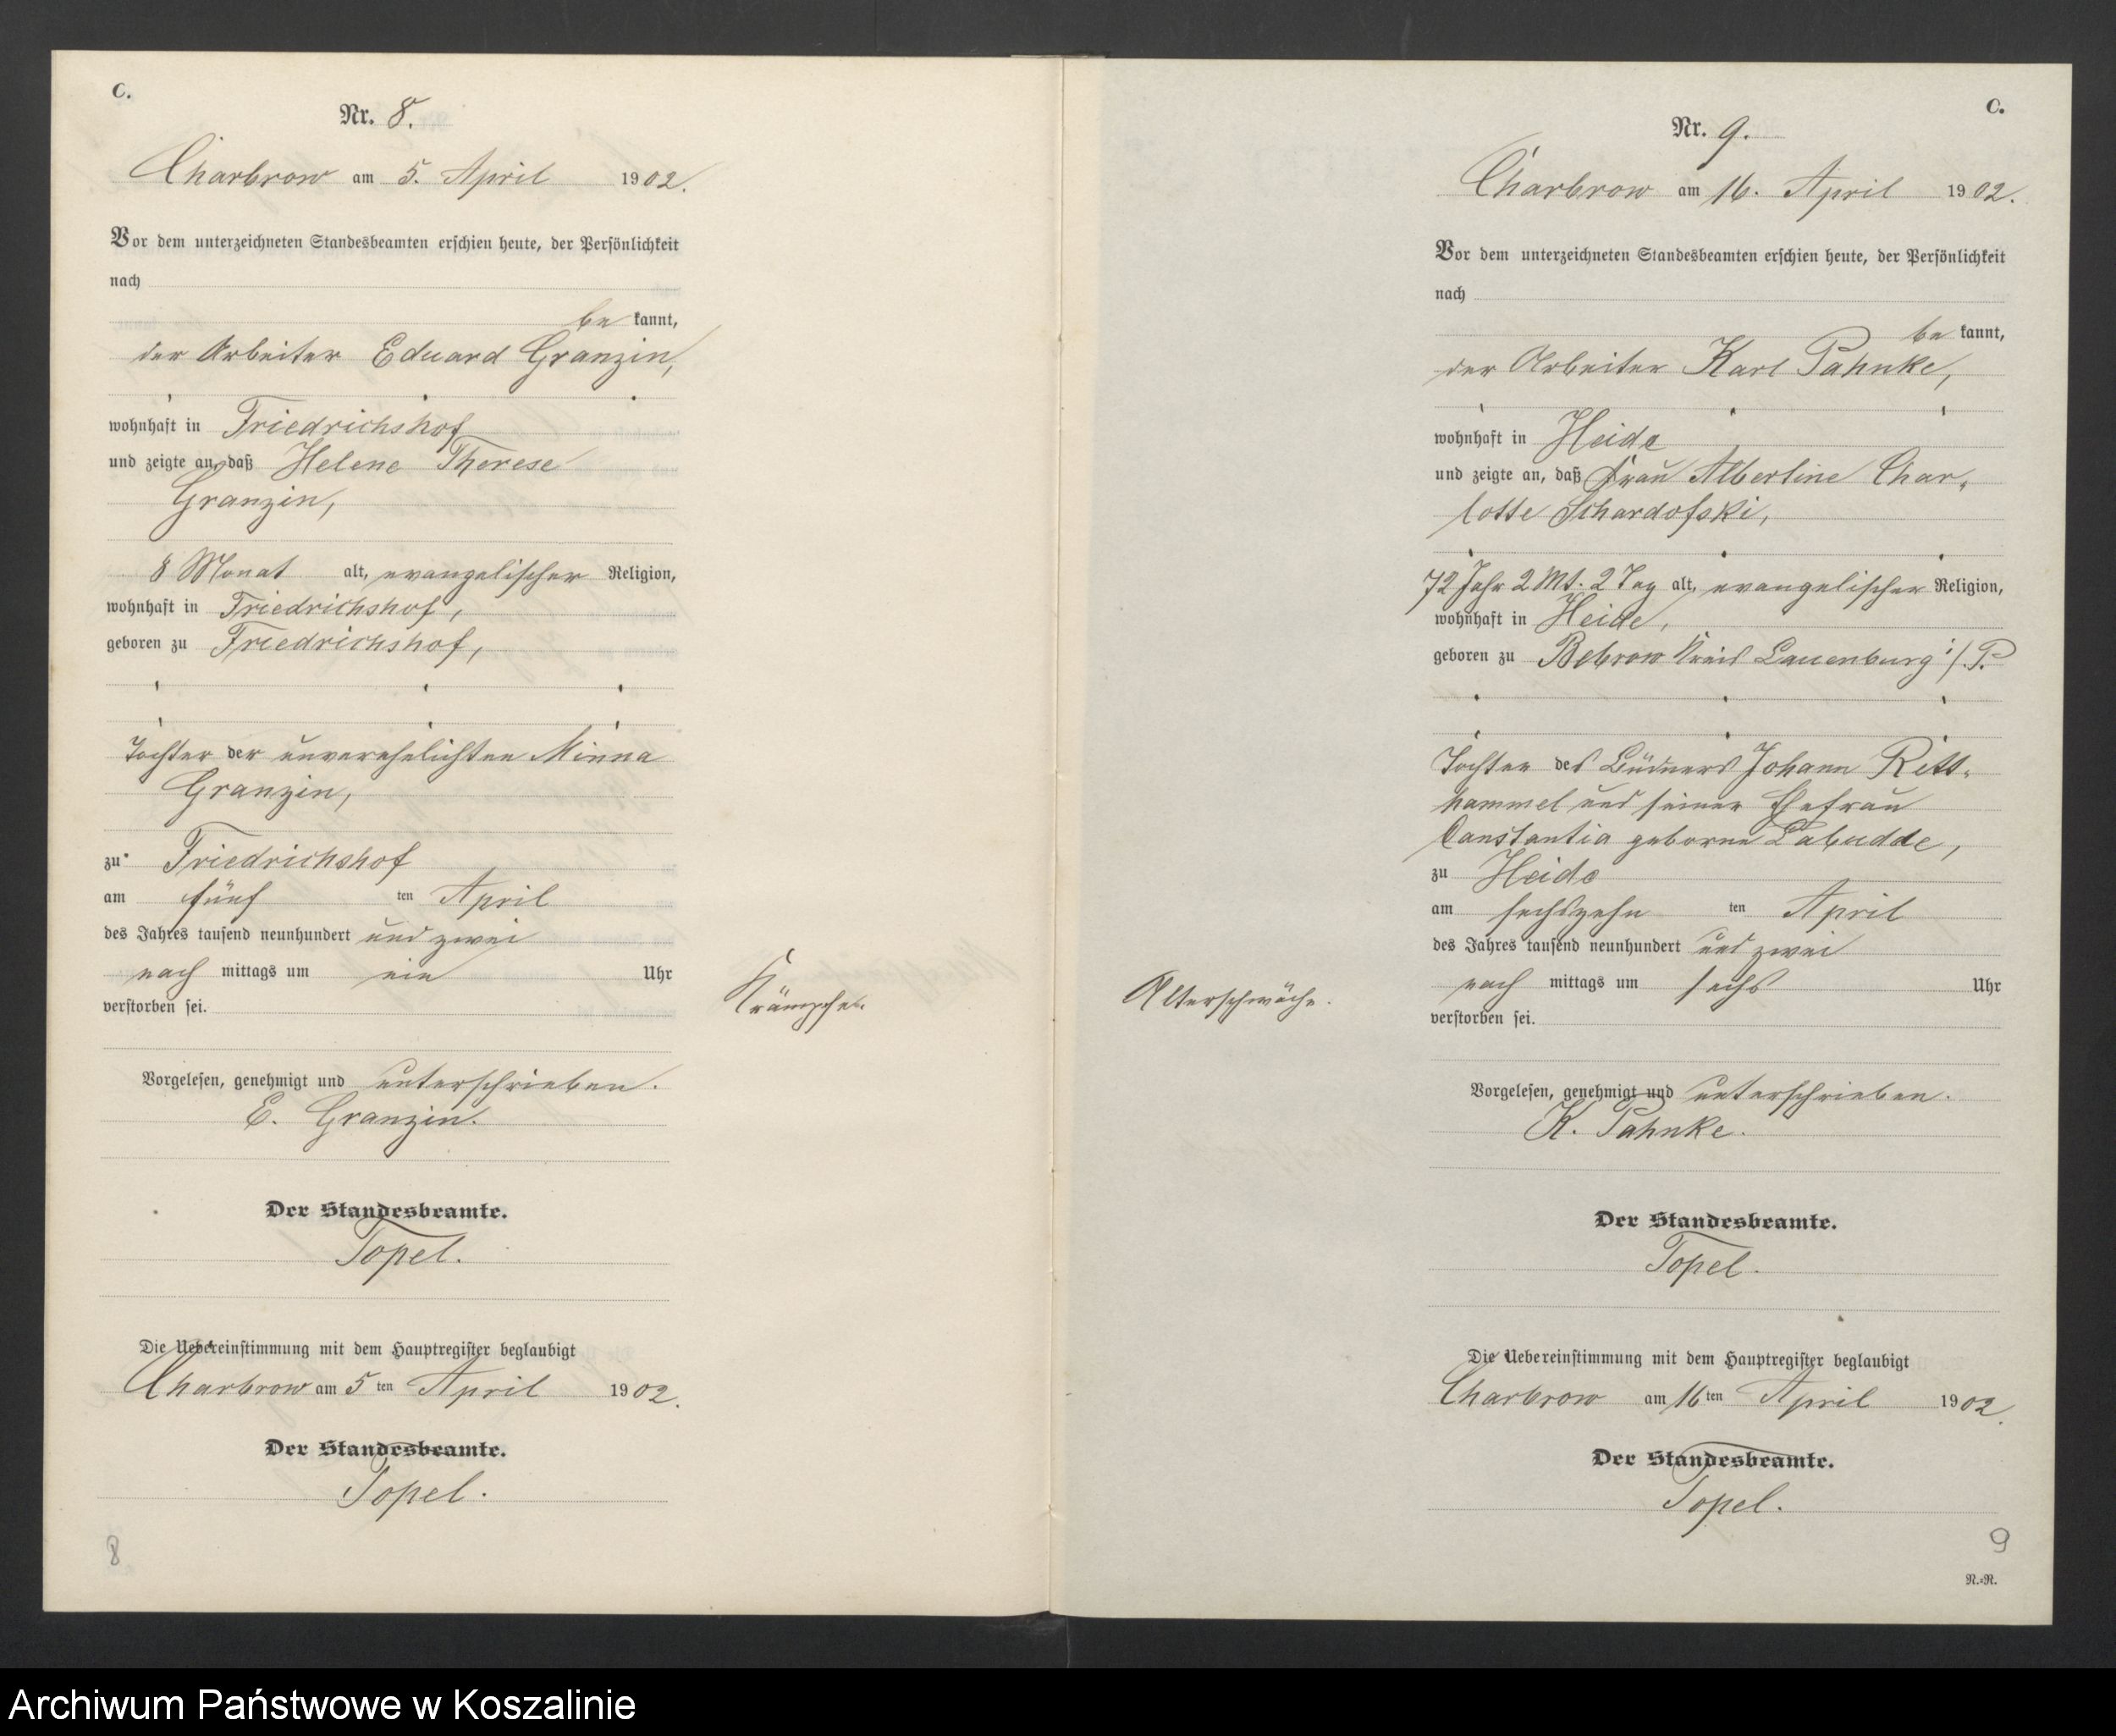 C.
Nr. 8.
Charbrow am 5. April 1902.
Vor dem unterzeichneten Standesbeamten erschien heute, der Persönlichkeit
nach
be kannt,
der Arbeiter Eduard Granzin,
wohnhaft in Friedrichshof
und zeigte an, daß Helene Therese
Granzin,
8 Monat alt, evangelischer Religion,
wohnhaft in Friedrichshof,
geboren zu Friedrichshof,
Tochter der unverehelichten Minna
Granzin,
zu Friedrichshof
am fünf ten April
des Jahres tausend neunhundert und zwei
nach mittags um ein Uhr
verstorben sei.
Krämpfe.
Vorgelesen, genehmigt und unterschrieben.
E. Granzin.
Der Standesbeamte.
Topel.
Die Uebereinstimmung mit dem Hauptregister beglaubigt
Charbrow am 5 ten April 1902.
Der Standesbeamte.
Topel.
8
C.
Nr. 9.
Charbrow am 16. April 1902.
Vor dem unterzeichneten Standesbeamten erschien heute, der Persönlichkeit
nach
be kannt,
der Arbeiter Karl Pahnke,
wohnhaft in Heide
und zeigte an, daß Frau Albertine Char-
lotte Schardofski,
72 Jahr 2 Mt. 2 Tag alt, evangelischer Religion,
wohnhaft in Heide,
geboren zu Bebrow Kreis Lauenburg i/.P.
Tochter des Büdners Johann Rett-
hammel und seiner Ehefrau
Constantia geborne Labudde,
zu Heide
am sechszehn ten April
des Jahres tausend neunhundert und zwei
nach mittags um sechs Uhr
verstorben sei.
Alterschwäche.
Vorgelesen, genehmigt und unterschrieben.
K. Pahnke.
Der Standesbeamte.
Topel.
Die Uebereinstimmung mit dem Hauptregister beglaubigt
Charbrow am 16 ten April 1902.
Der Standesbeamte.
Topel.
9
N.-R.
Archiwum Państwowe w Koszalinie